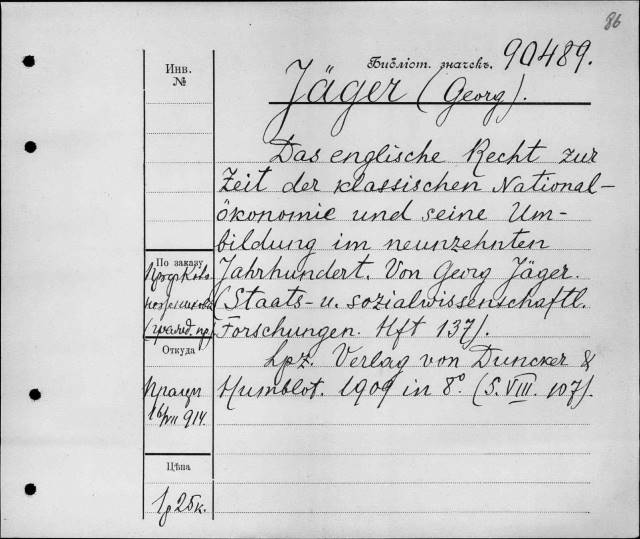 86
Инв.
№
Библіот. значекъ. 90489.
Jäger (Georg).
Das englische Recht zur
Zeit der klassischen National-
ökonomie und seine Um-
bildung im neunzehnten
Jahrhundert. Von Georg Jäger.
(Staats- u. sozialwissenschaftl.
Forschungen. Hft 137).
Lpz. Verlag von Duncker &
Humblot. 1909 in 8° (S. VIII. 107).
По заказу
Проф.
(гражд. пр.)
Откуда
16/VII 914.
Цѣна
1р 25к.